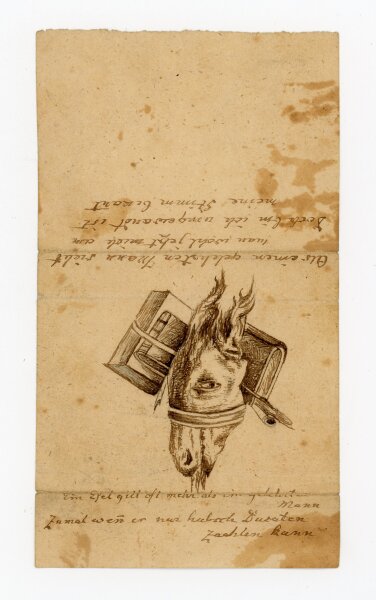 Als einen gelehrten Mann sieht
man wohl jetzt mich an
Doch bin ich umgewandt ist
meine Stimm bekañt
Ein Esel gilt oft mehr als ein gelehrter
Mann
Zumal weñ er nur hubsch Ducaten
Zaehlen kann